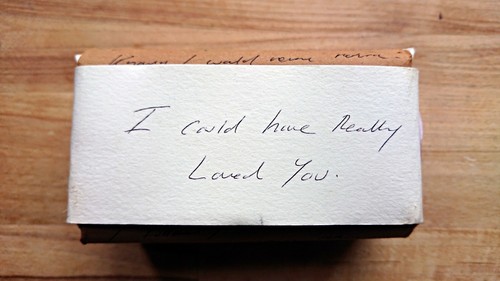 I would never
I could have Really
Loved You.